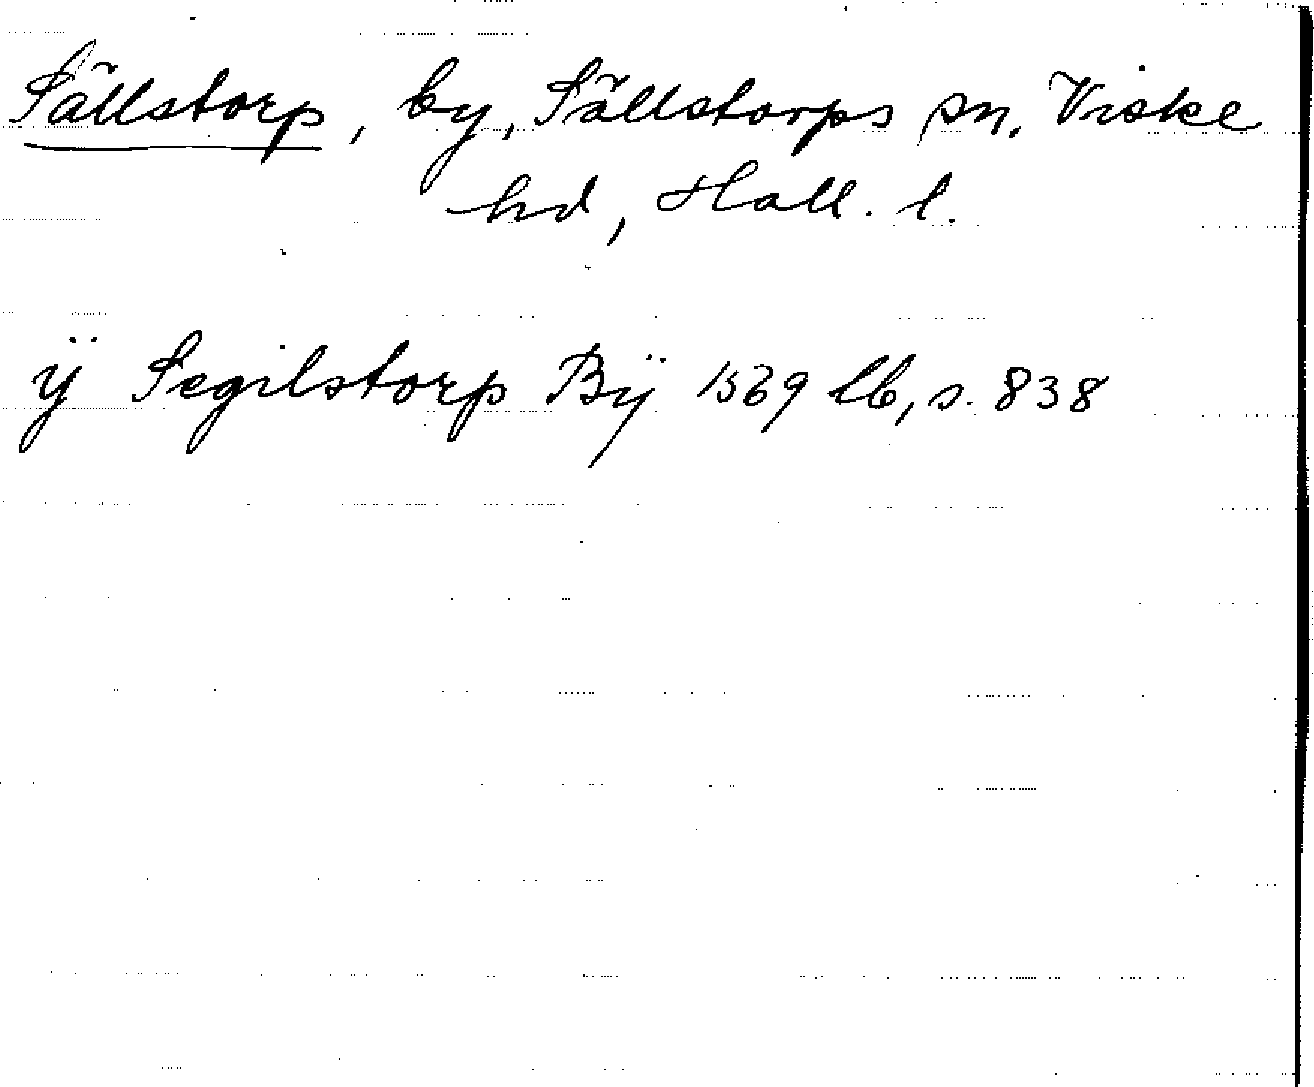 Sällstorp, by, Sällstorps sn. Viske
hd, Hall. l.
ÿ Segilstorp Bÿ 1569 lb, s. 838